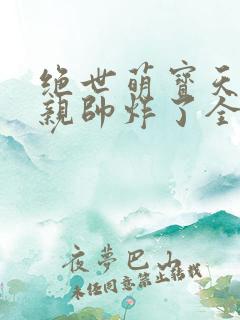 绝世萌寶天
親帥炸了全
夜夢巴山
未经同意禁止转载